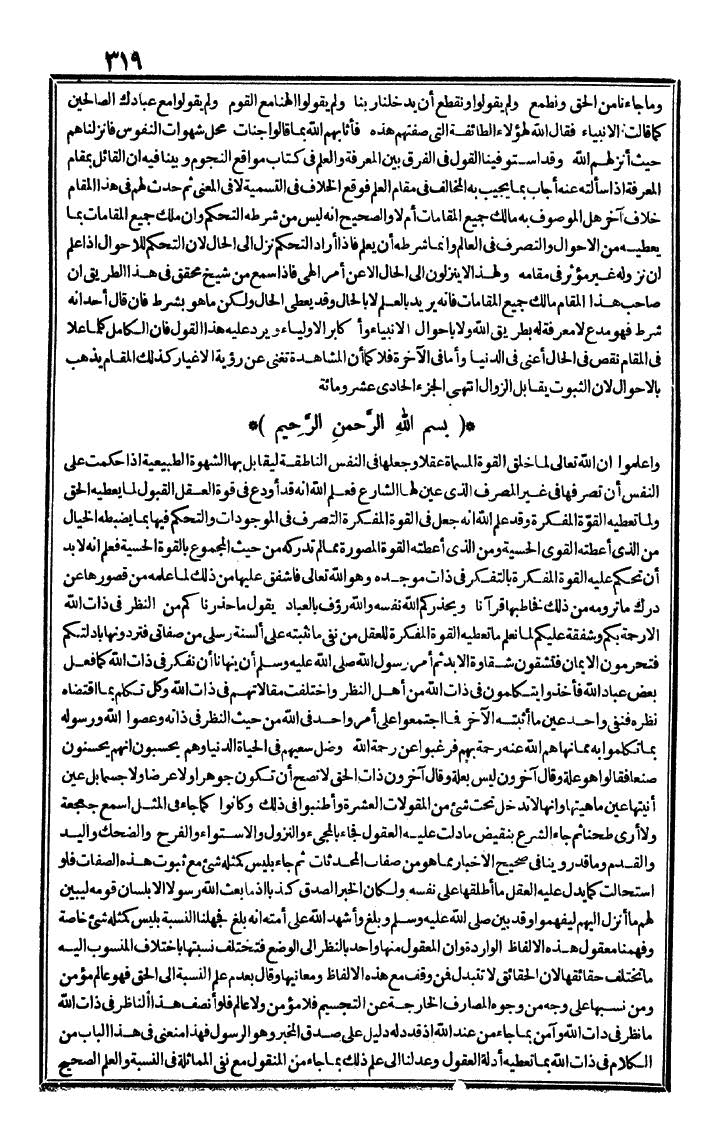 ٣١٩
وماجاءنا من الحق ونطمع ولم يقولوا ونقطع أن يدخلنا ربنا ولم يقولوا الهنا مع القوم ولم يقولوا مع عبادك الصالحين
كما قالت الانبياء فقال الله لهؤلاء الطائفة التى صفتهم هذه فأثابهم الله بما قالوا جنات محل شهوات النفوس فانزلناهم
حيث أنزلهم الله وقد استوفينا القول فى الفرق بين المعرفة والعلم فى كتاب مواقع النجوم وبينا فيه ان القائل بمقام
المعرفة اذا سألته عنه أجاب بما يجيب به المخالف فى مقام العلم فوقع الخلاف فى التسمية لا فى المعنى ثم حدث لهم فى هذا المقام
خلاف آخر هل الموصوف به مالك جميع المقامات أم لا والصحيح انه ليس من شرطه التحكم وان ملك جميع المقامات بما
يعطيه من الاحوال والتصرف فى العالم وانما شرطه أن يعلم فاذا أراد التحكم نزل الى الحال لان التحكم للاحوال اذا علم
ان نزوله غير مؤثر فى مقامه ولهذا لاينزلون الى الحال الا عن أمر الهى فاذا سمع من شيخ محقق فى هذا الطريق ان
صاحب هذا المقام مالك جميع المقامات فانه يريد بالعلم لا بالحال وقد يعطى الحال ولكن ماهو بشرط فان قال أحد انه
شرط فهو مدع لا معرفة له بطريق الله ولا باحوال الانبياء وأكابر الاولياء ويرد عليه هذا القول فان الكامل كلما علا
فى المقام نقص فى الحال أعنى فى الدنيا وأما فى الآخرة فلا كما أن المشاهدة تغنى عن رؤية الاغيار كذلك المقام يذهب
بالاحوال لان الثبوت يقابل الزوال انتهى الجزء الحادى عشر ومائة
*( بسم الله الرَّحمنِ الرَّحِيم )*
واعلموا ان الله تعالى لما خلق القوة المسماة عقلا وجعلها فى النفس الناطقة ليقابل بها الشهوة الطبيعية اذا حكمت على
النفس أن تصرفها فى غير المصرف الذى عين لها الشارع فعلم الله انه قد أودع فى قوة العقل القبول لما يعطيه الحق
ولما تعطيه القوّة المفكرة وقد علم الله انه جعل فى القوة المفكرة التصرف فى الموجودات والتحكم فيها بما يضبطه الخيال
من الذى أعطته القوى الحسية ومن الذى أعطته القوة المصورة مما لم تدركه من حيث المجموع بالقوة الحسية فعلم انه لا بد
أن تحكم عليه القوة المفكرة بالتفكر فى ذات موجده وهو الله تعالى فاشفق عليها من ذلك لما علمه من قصورها عن
درك ماترومه من ذلك فخاطبها قرآنا ويحذركم الله نفسه والله رؤف بالعباد يقول ماحذرناكم من النظر فى ذات الله
الا رحمة بكم وشفقة عليكم لما نعلم ماتعطيه القوة المفكرة للعقل من نفى مانثبته على ألسنة رسلى من صفاتى فتردونها بادلتكم
فتحرمون الايمان فتشقون شقاوة الابد ثم أمر رسول الله صلى الله عليه وسلم أن ينهانا أن نفكر فى ذات الله كما فعل
بعض عباد الله فأخذوا يتكلمون فى ذات الله من أهل النظر واختلفت مقالاتهم فى ذات الله وكل تكلم بما اقتضاه
نظره فنفى واحد عين ما أثبته الآخر فما اجتمعوا على أمر واحد فى الله من حيث النظر فى ذاته وعصوا الله ورسوله
بما تكلموا به مما نهاهم الله عنه رحمة بهم فرغبوا عن رحمة الله وضل سعيهم فى الحياة الدنيا وهم يحسبون انهم يحسنون
صنعا فقالوا هو علة وقال آخرون ليس بعلة وقال آخرون ذات الحق لا تصح أن تكون جوهرا ولا عرضا ولا جسما بل عين
أنيتها عين ماهيتها وانها لا تدخل تحت شئ من المقولات العشرة وأطنبوا فى ذلك وكانوا كما جاء فى المثل اسمع جعجعة
ولا أرى طحنا ثم جاء الشرع بنقيض مادلت عليه العقول فجاء بالمجىء والنزول والاستواء والفرح والضحك واليد
والقدم وماقد روينا فى صحيح الاخبار مما هو من صفات المحدثات ثم جاء بليس كمثله شئ مع ثبوت هذه الصفات فلو
استحالت كما يدل عليه العقل ما أطلقها على نفسه ولكان الخبر الصدق كذبا اذ ما بعث الله رسولا الا بلسان قومه ليبين
لهم ما أنزل اليهم ليفهموا وقد بين صلى الله عليه وسلم وبلغ وأشهد الله على أمته انه بلغ فجهلنا النسبة بليس كمثله شئ خاصة
وفهمنا معقول هذه الالفاظ الواردة وان المعقول منها واحد بالنظر الى الوضع فتختلف نسبتها باختلاف المنسوب اليه
ماتختلف حقائقها لان الحقائق لا تتبدل فن وقف مع هذه الالفاظ ومعانيها وقال بعدم علم النسبة الى الحق فهو عالم مؤمن
ومن نسبها على وجه من وجوه المصارف الخارجة عن التجسيم فلا مؤمن ولا عالم فلو أنصف هذا الناظر فى ذات الله
مانظر فى ذات الله وآمن بما جاء من عند الله اذ قد دله دليل على صدق المخبر وهو الرسول فهذا منعنى فى هذا الباب من
الكلام فى ذات الله بما تعطيه أدلة العقول وعدلنا الى علم ذلك بما جاء من المنقول مع نفى المماثلة فى النسبة والعلم الصحيح